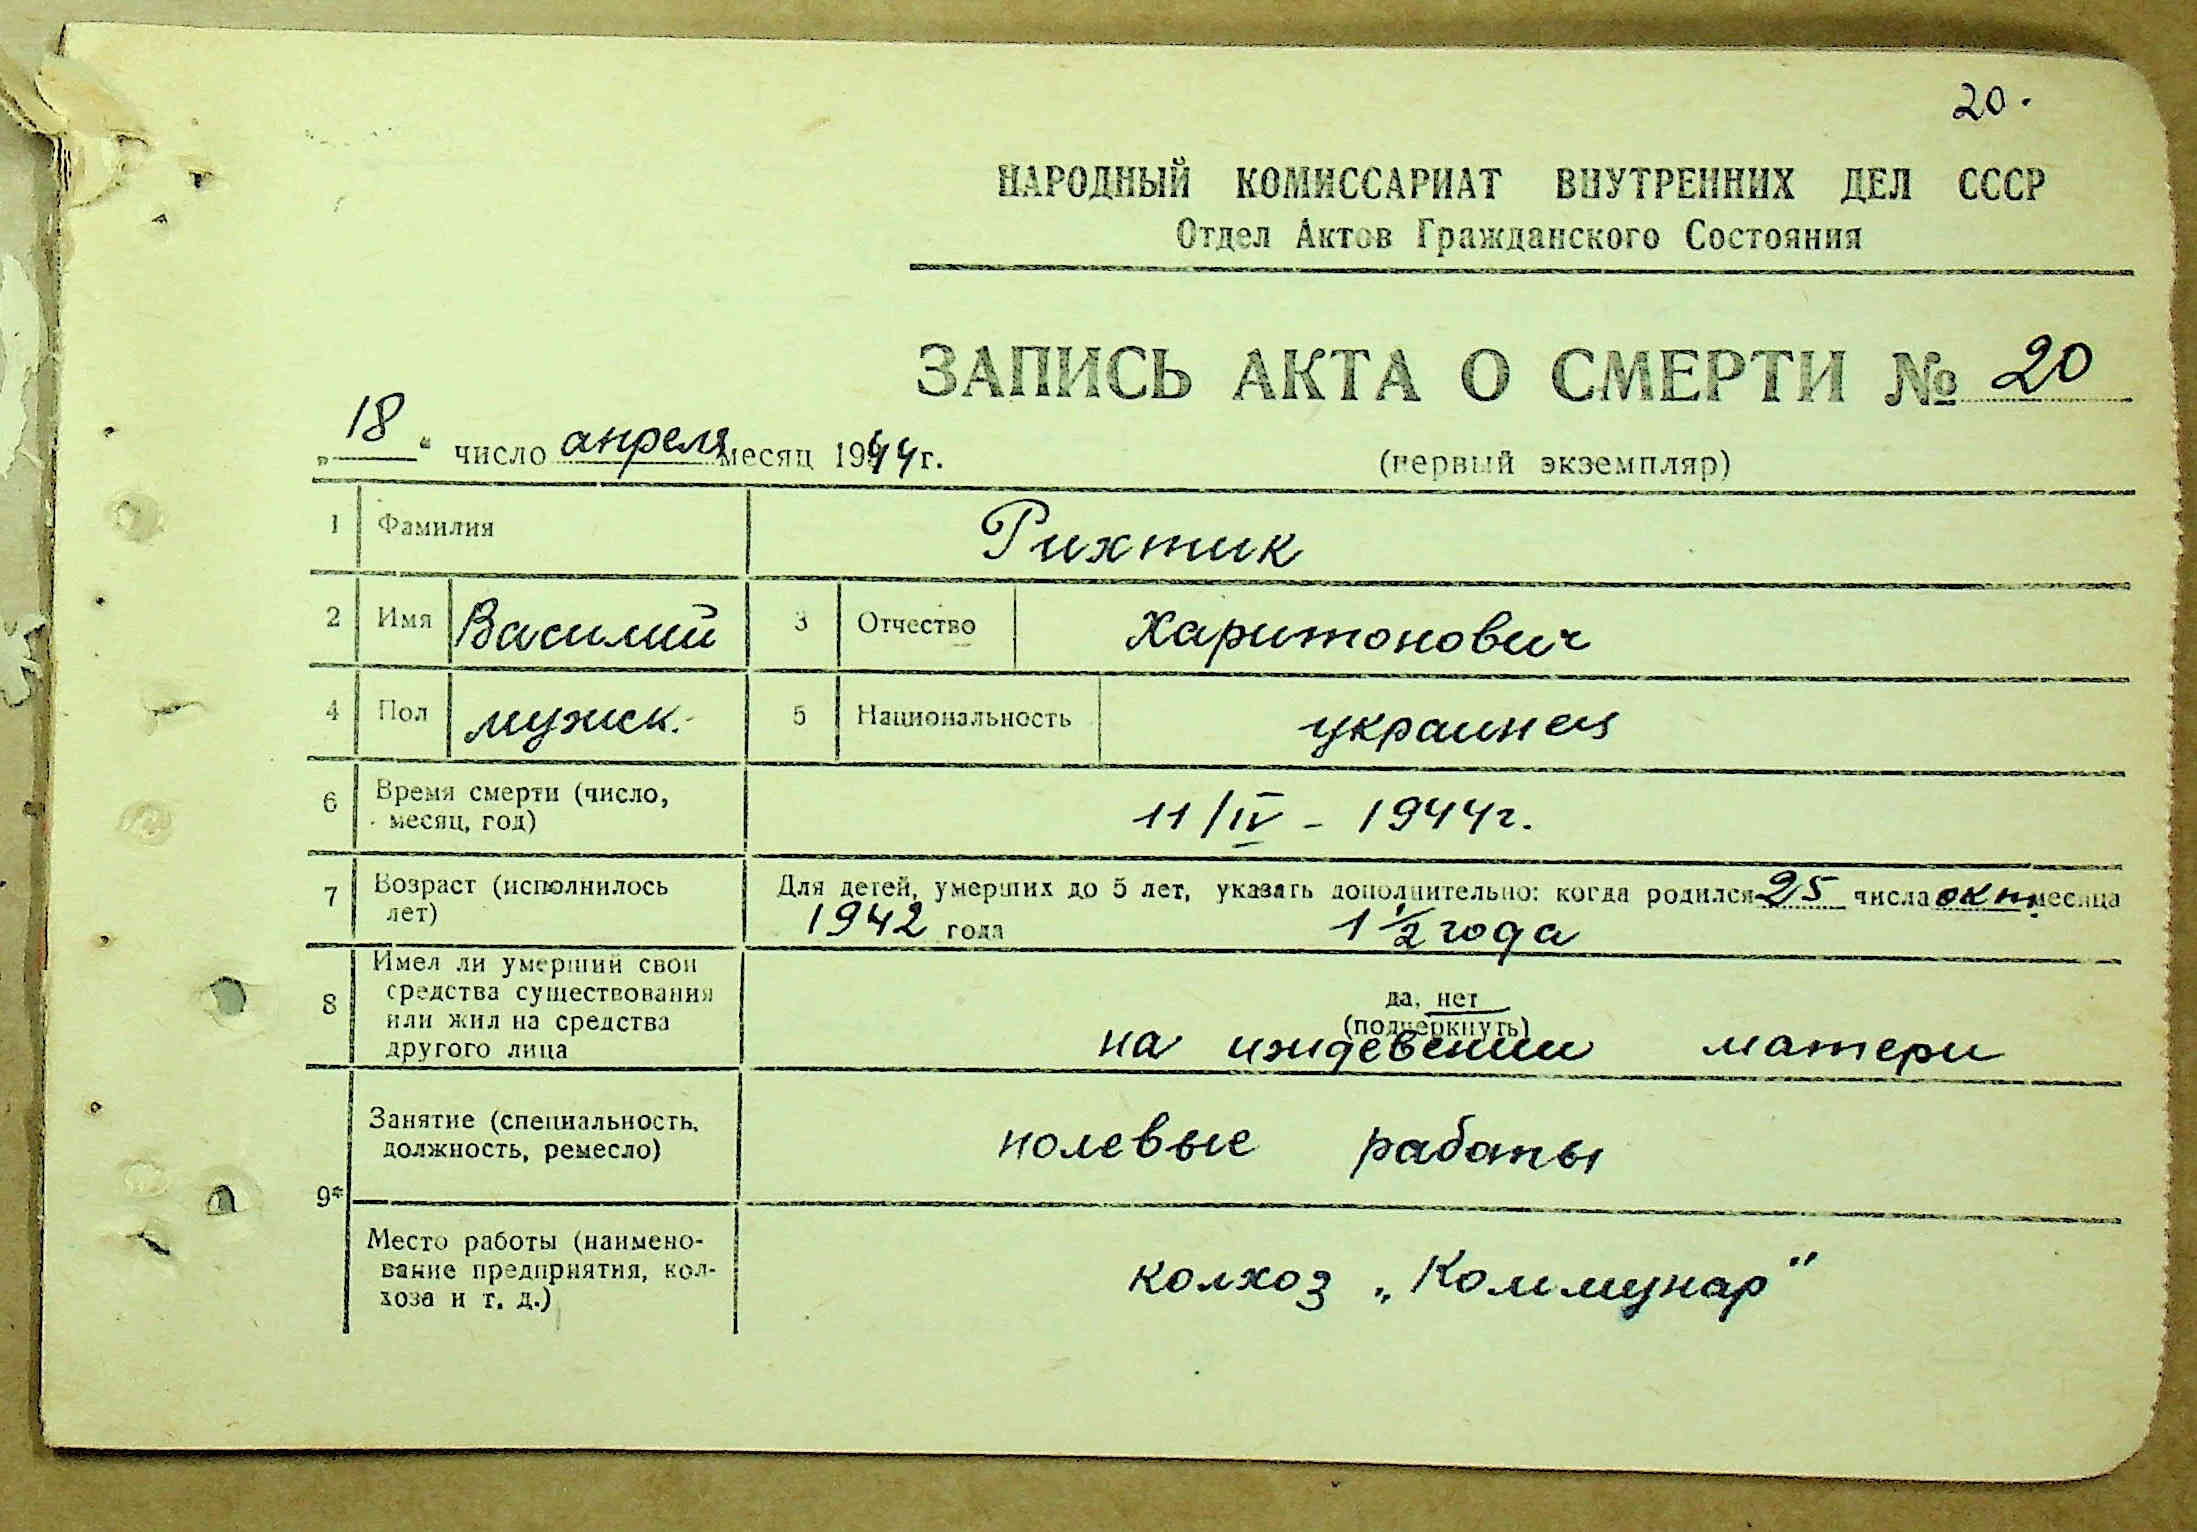 20.
НАРОДНЫЙ КОМИССАРИАТ ВНУТРЕННИХ ДЕЛ СССР
Отдел Актов Гражданского Состояния
ЗАПИСЬ АКТА О СМЕРТИ № 20
„18“ число апреля месяц 1944г.
(первый экземпляр)
1 Фамилия Рихтик
2 Имя Василий 3 Отчество Харитонович
4 Пол мужск. 5 Национальность украинец
6 Время смерти (число, месяц, год) 11/IV - 1944г.
7 Возраст (исполнилось лет) Для детей, умерших до 5 лет, указать дополнительно: когда родился 25 числа окт. месяца
1942 года 1 1/2 года
8 Имел ли умерший свои средства существования или жил на средства другого лица
да, нет
(подчеркнуть)
на иждевении матери
9* Занятие (специальность, должность, ремесло) полевые работы
Место работы (наименование предприятия, колхоза и т. д.) колхоз „Коммунар"